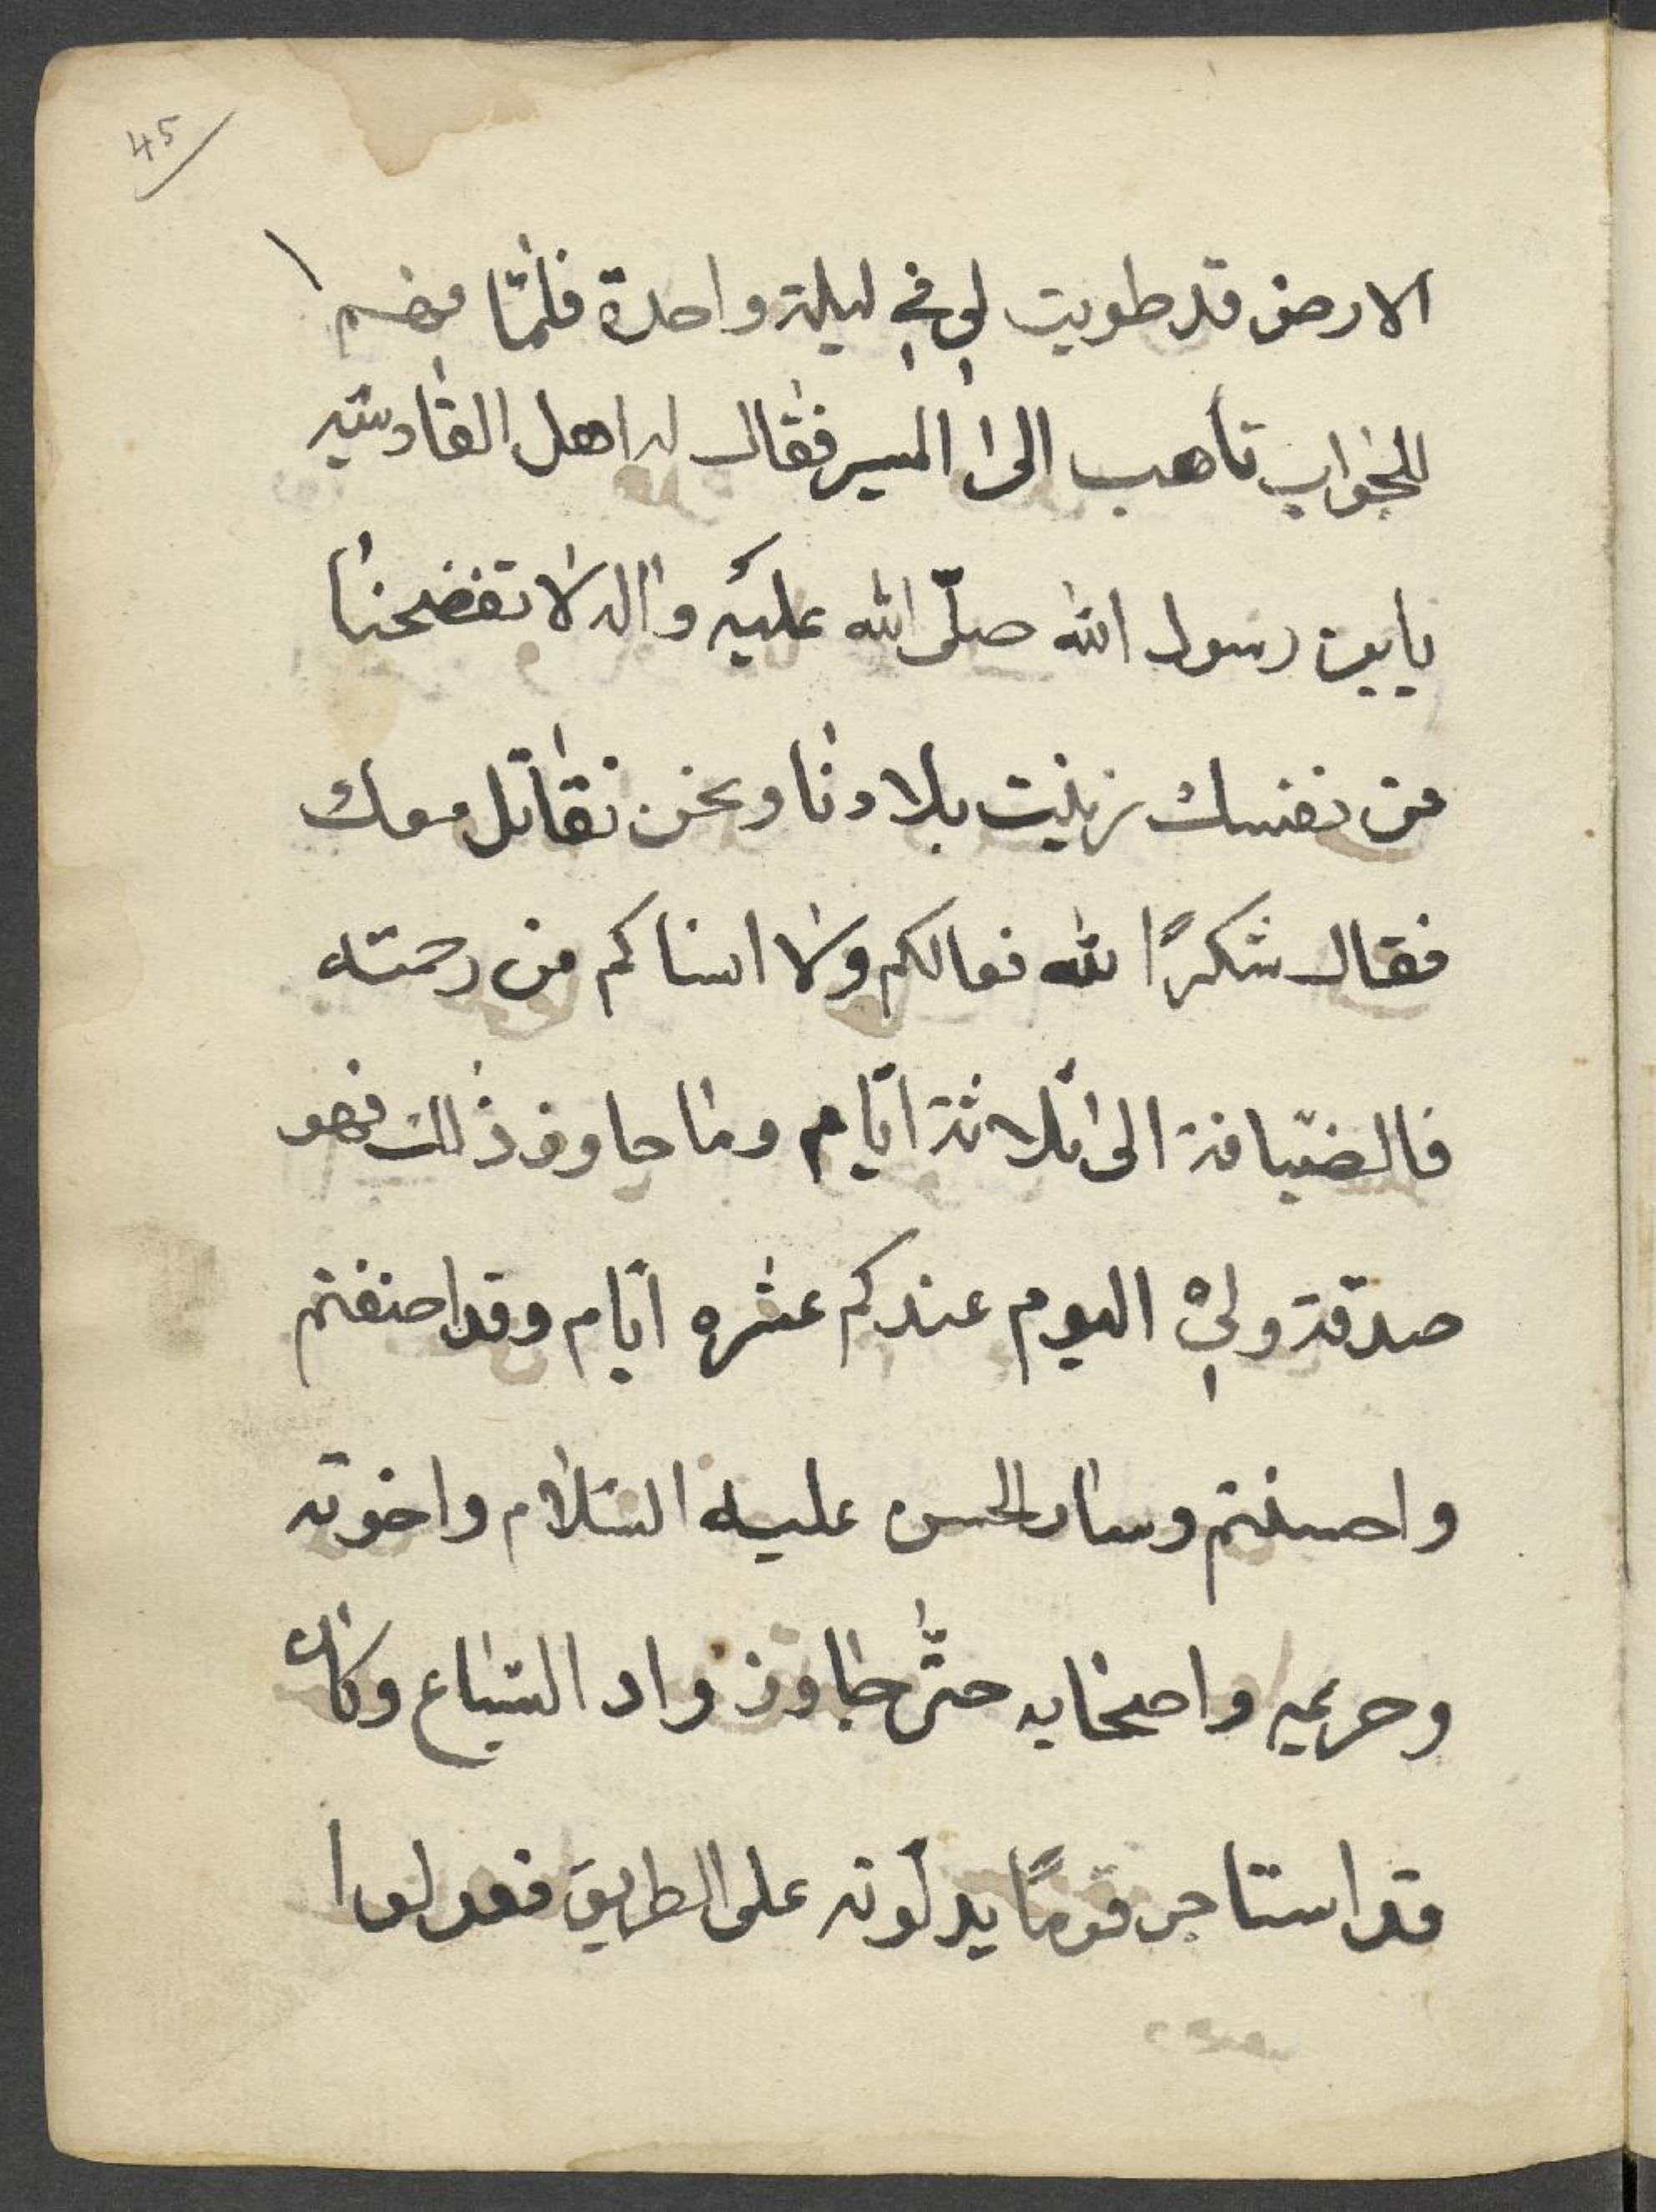 45
الارض قد طويت لي في ليلة واحدة فلمّا فهم
الجواب تأهب الى المسير فقال له اهل القادسيّه
يابن رسول الله صلّى الله عليه واله لا تفضحنا
من نفسك زينت بلادنا ونحن نقاتل معك
فقال شكرًا لله فعالكم ولا انساكم من رحمته
فالضيافة الى ثلاثة ايّام وما جاوز ذلك فهو
صدقة ولي اليوم عندكم عشره ايّام وقد اضفتم
واحسنتم وسار الحسن عليه السّلام واخوته
وحريمه واصحابه حتّى جاوز واد السّباع وكان
قد استاجر قومًا يدلّونه على الطريق فعدلوا